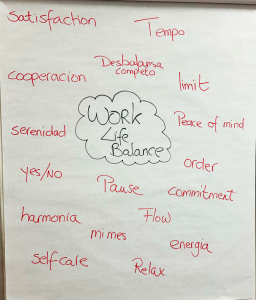 Satisfaction
Tempo
Desbalansa
completo
cooperacion
limit
WORK
Life
Balance
Peace of mind
serenidad
order
yes/No
Pause
commitment
harmonia
Flow
mimes
energia
selfcare
Relax